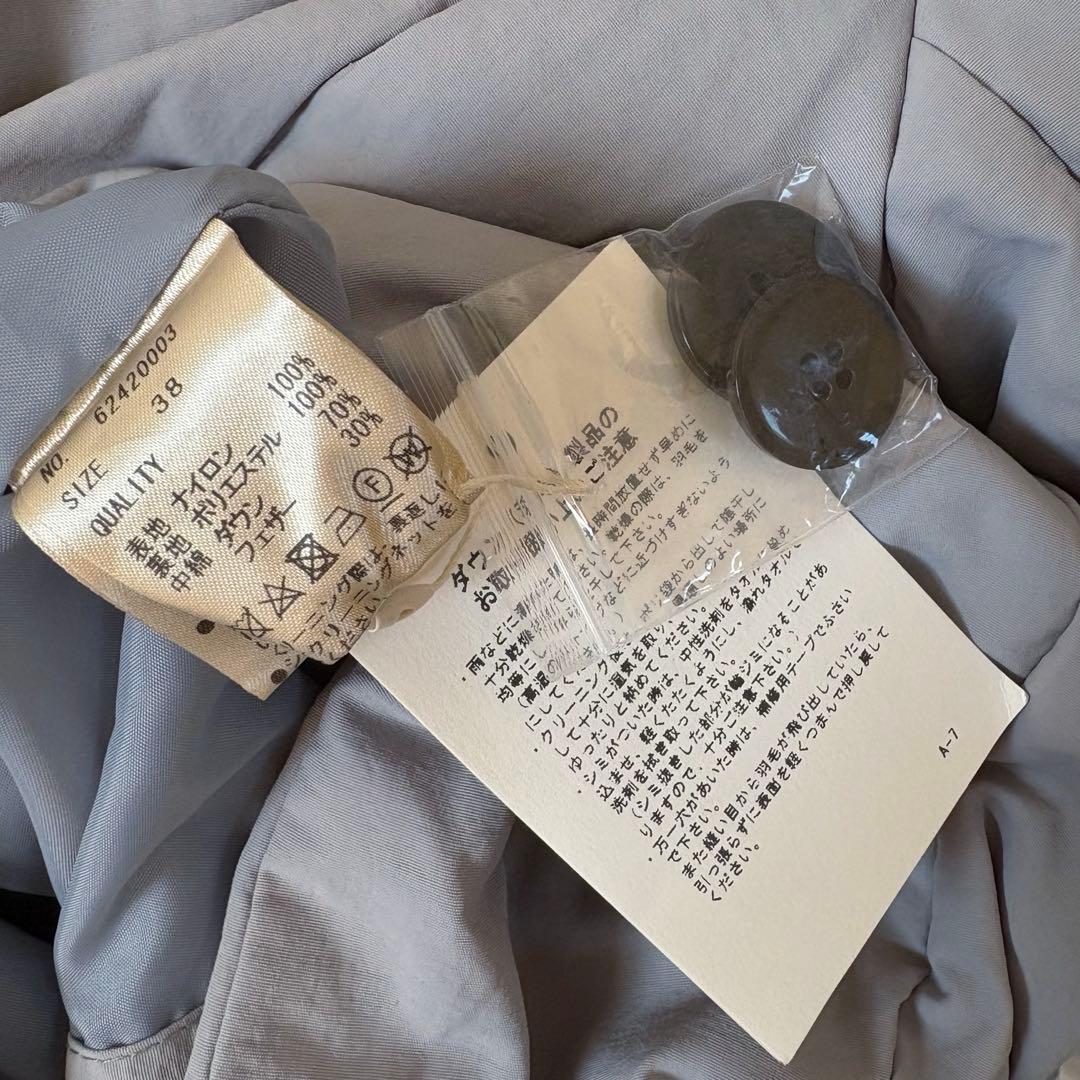 NO. 62420003
SIZE 38
QUALITY
表地 ナイロン 100%
裏地 ポリエステル 100%
中綿 ダウン 70%
フェザー 30%
F
裏返し
ーニング際は、
クリーニングネットを
ださい
製品の
ご注意
ダウ
お取
・雨などに
時間放置せず早めに
十分乾燥
乾燥の際は、羽毛を
均等に
干して下さい。
(高温
などに近づけすぎないよう
にして
・クリーニング
袋から出して陰干し
して十分に湿気を取り
のよい場所に
ゆったりと納めてください。
・シミがついた時は、中性洗剤をタオル
込ませ、軽くたたくようにし、濡れタオルで
洗剤を拭き取って下さい。
(シミ抜きした部分が輪ジミになることがあ
りますので、十分ご注意下さい。)
・万一穴があいた時は、補修用テープでふさい
で下さい。
また縫い目から羽毛が飛び出していたら、
引っ張らずに表面を軽くつまんで押し戻して
ください。
A-7